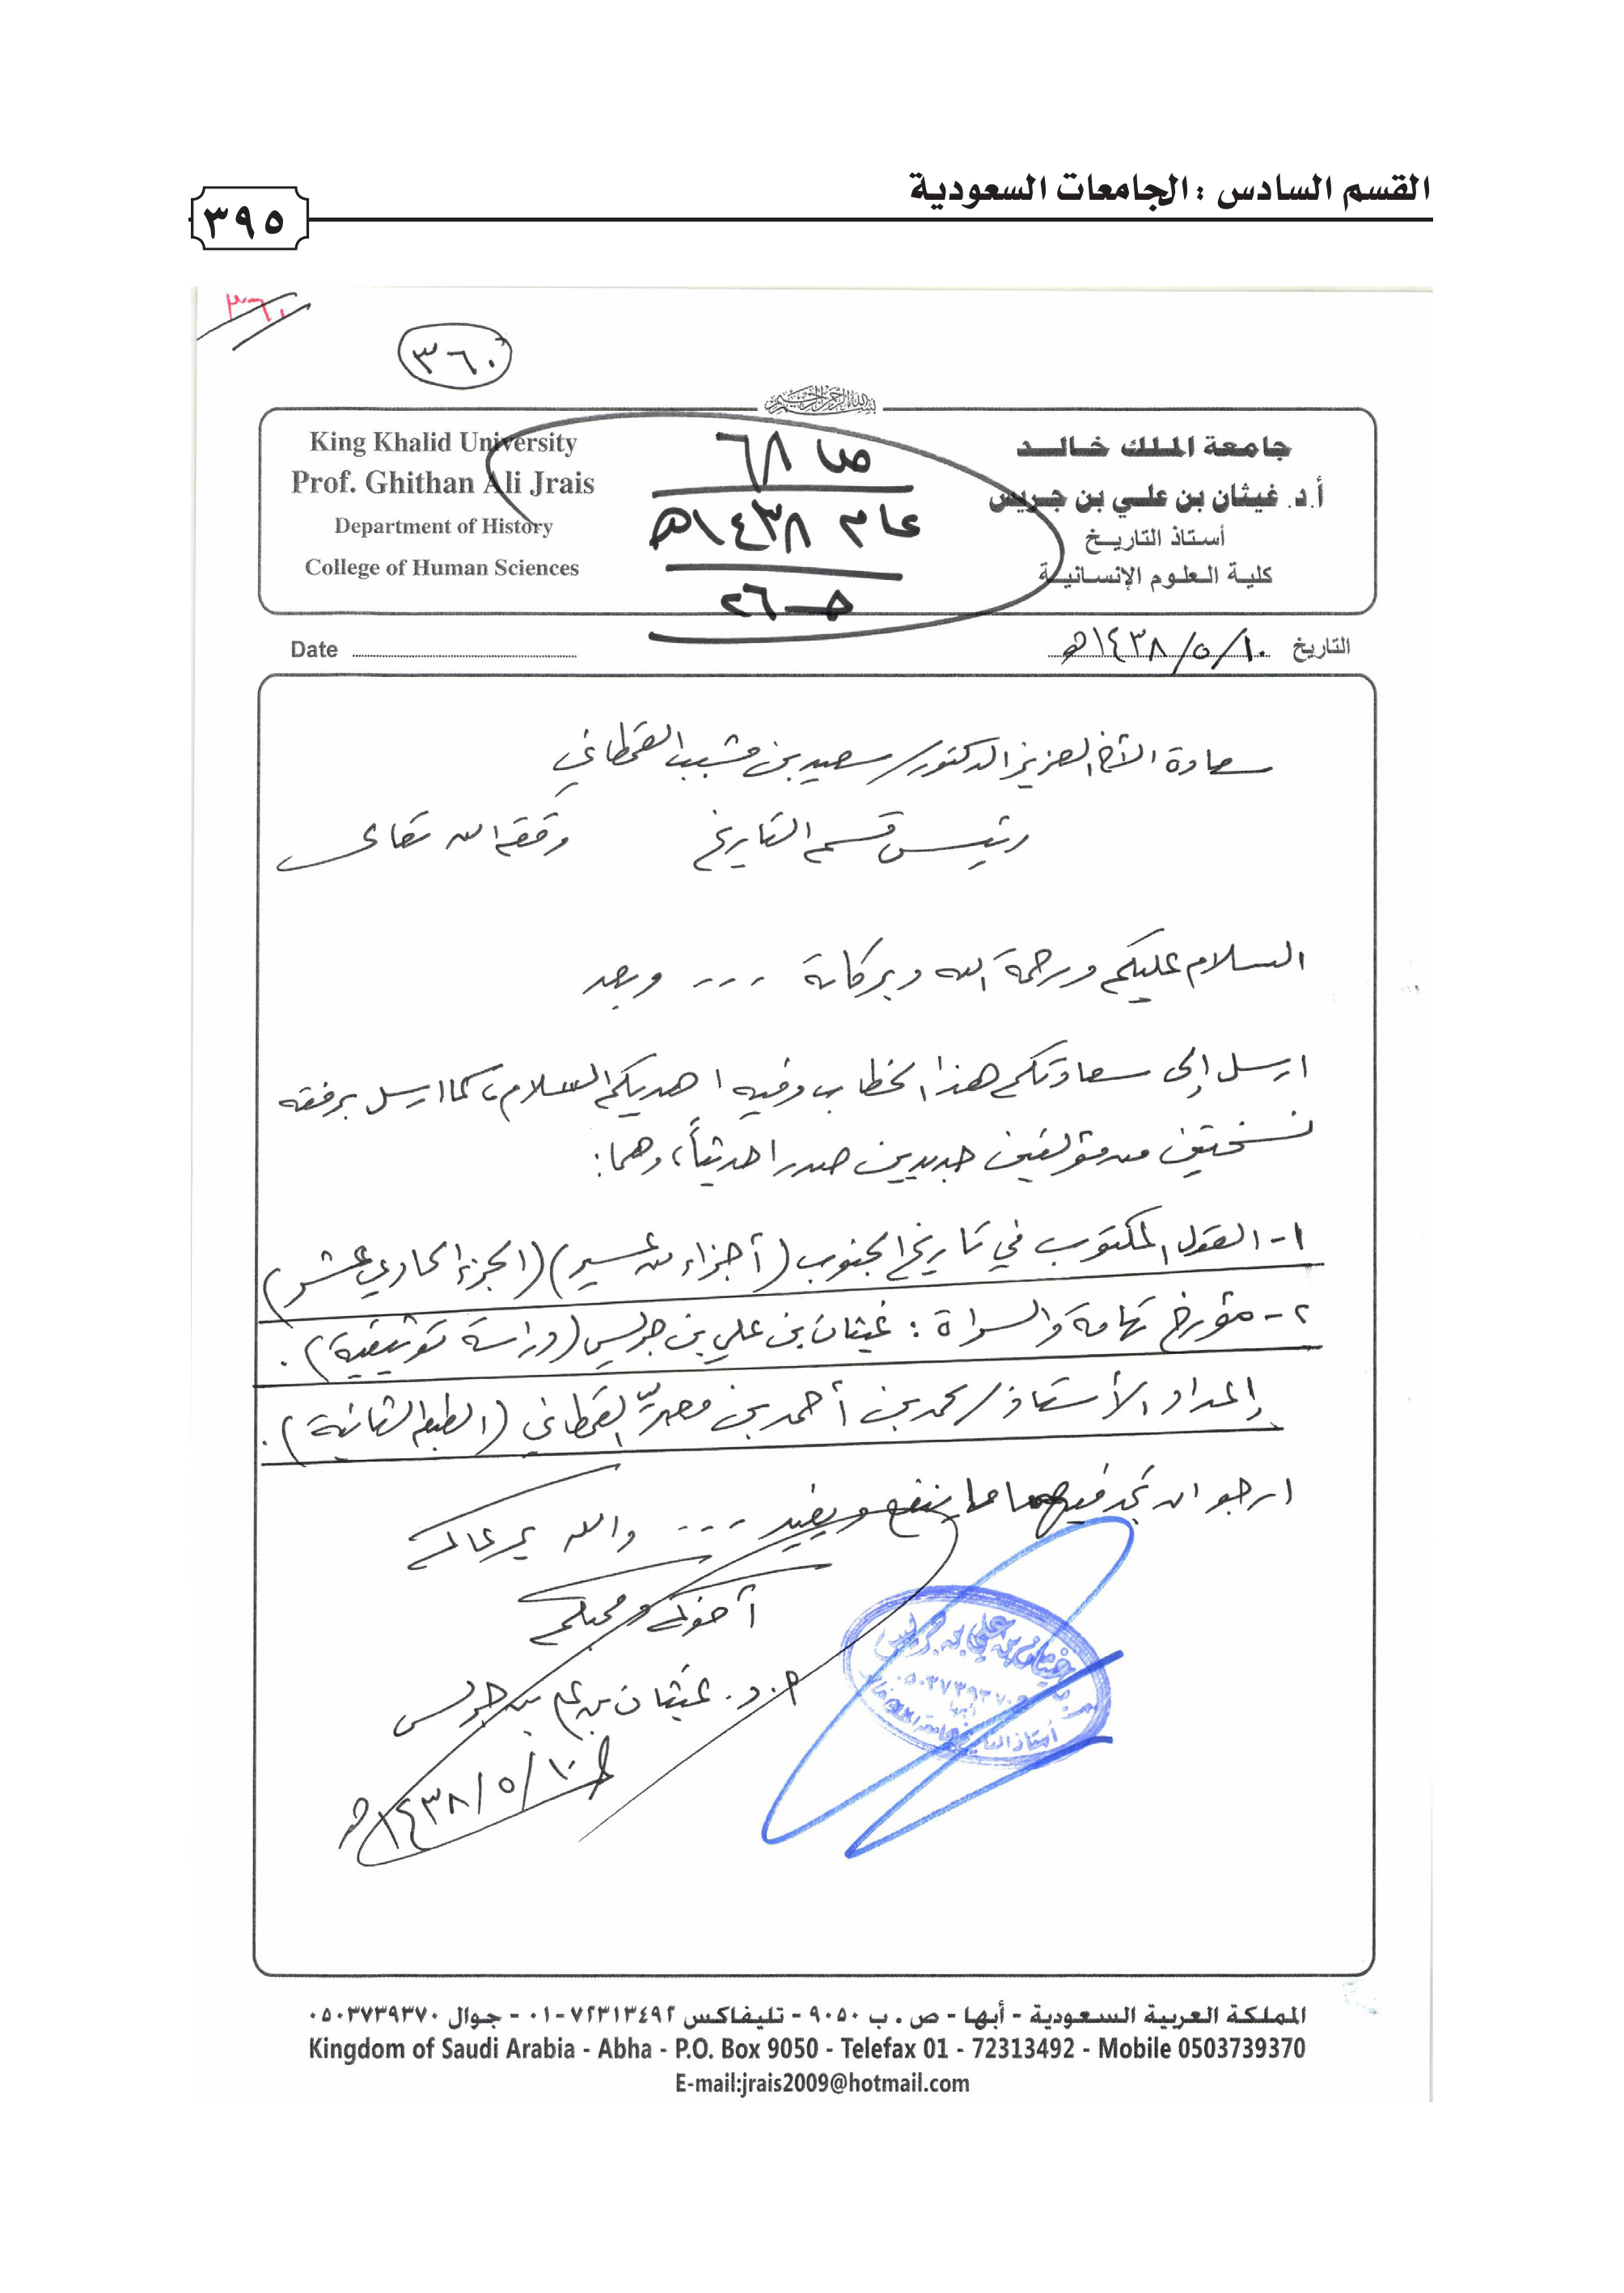 القسم السادس : الجامعات السعودية
٣٩٥
٣٦١
٣٦٠
بسم الله الرحمن الرحيم
King Khalid University
Prof. Ghithan Ali Jrais
Department of History
College of Human Sciences
ص ٦٨
عام ١٤٣٨هـ
جامعة الملك خالد
أ.د. غيثان بن علي بن جريس
أستاذ التاريخ
كلية العلوم الإنسانية
Date
التاريخ ١٠/٥/١٤٣٨هـ
سعادة الأخ العزيز الدكتور/ سعيد بن مشبب القحطاني
رئيس قسم التاريخ وفقه الله تعالى
السلام عليكم ورحمة الله وبركاته ... وبعد
ارسل إلى سعادتكم هذا الخطاب وفيه اهديكم السلام، كما ارسل برفقه
نسختين من مؤلفين جديدين صدرا حديثاً، وهما:
١- القول المكتوب في تاريخ الجنوب (أجزاء من عسير) (الجزء الحادي عشر)
٢- مؤرخ تهامة والسراة : غيثان بن علي بن جريس (دراسة توثيقية).
إعداد الأستاذ/ محمد بن أحمد بن معبر القحطاني (الطبعة الثانية).
ارجو ان تجد فيهما ما ينفع ويفيد ... والله يرعاكم
أخوكم ومحبكم
أ.د. غيثان بن علي بن جريس
١٠/٥/١٤٣٨هـ
غيثان بن علي بن جريس
٠٥٠٣٧٣٩٣٧٠
أبها
أستاذ التاريخ بجامعة الملك خالد
المملكة العربية السعودية - أبها - ص . ب ٩٠٥٠ - تليفاكس ٧٢٣١٣٤٩٢-٠١ - جوال ٠٥٠٣٧٣٩٣٧٠
Kingdom of Saudi Arabia - Abha - P.O. Box 9050 - Telefax 01 - 72313492 - Mobile 0503739370
E-mail:jrais2009@hotmail.com